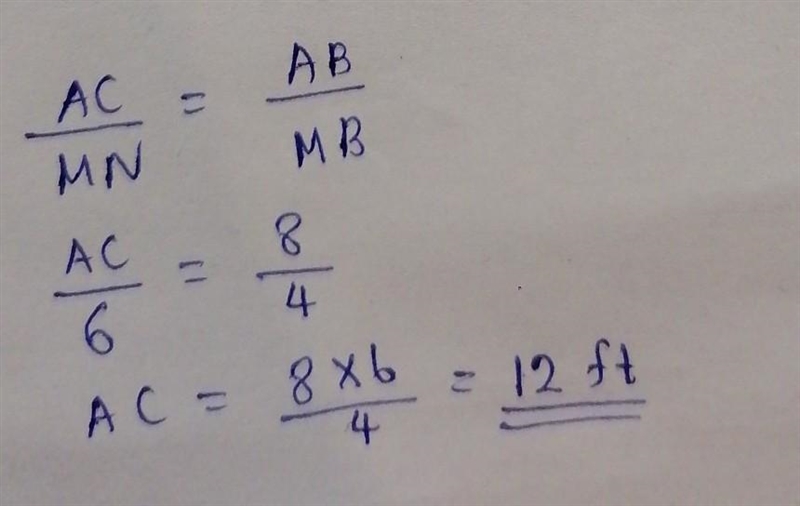 AC/MN = AB/MB
AC/6 = 8/4
AC = 8×6/4 = 12 ft